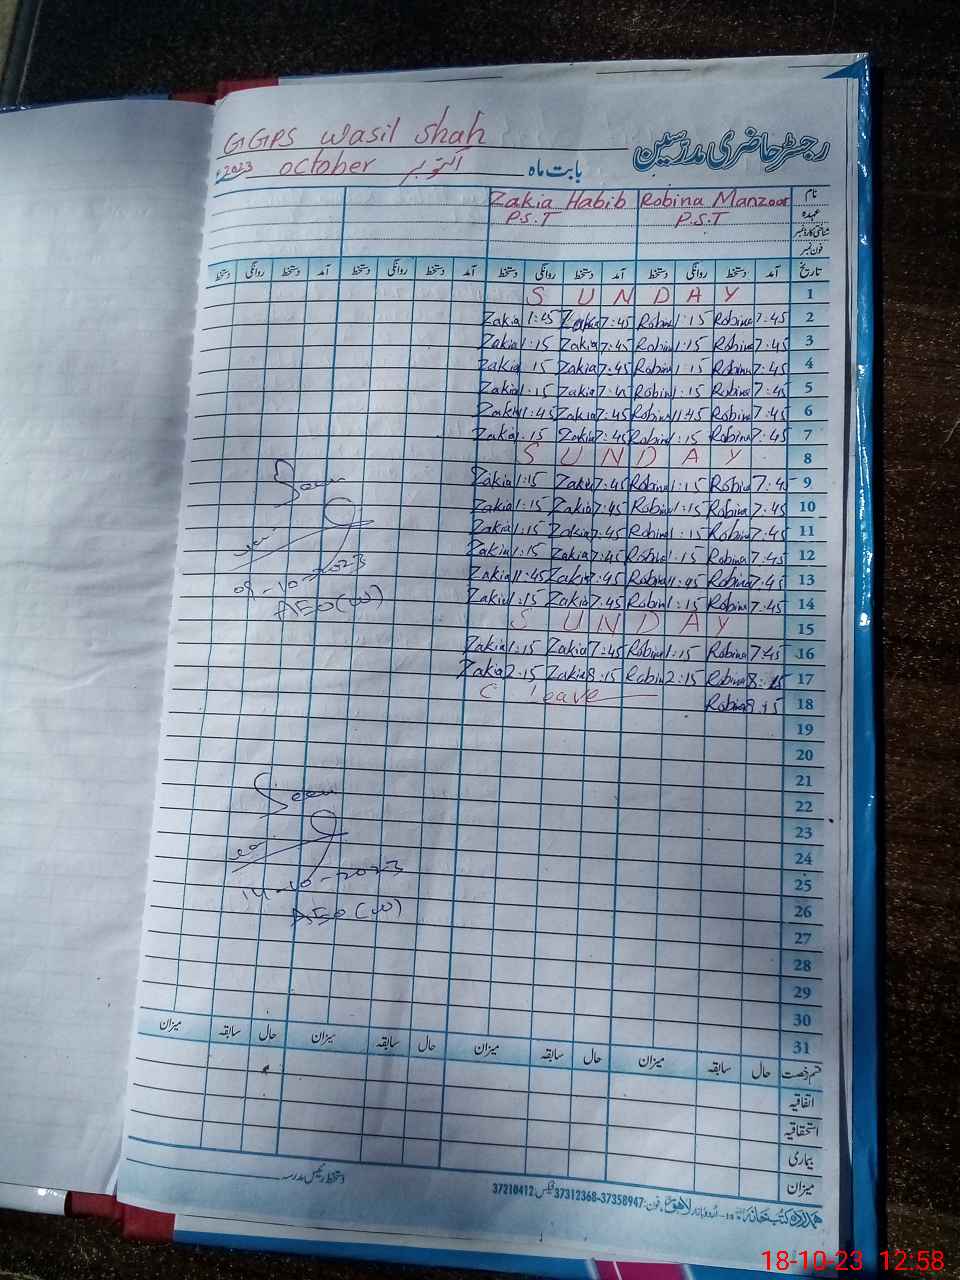 GGPS Wasil Shah
رجسٹر حاضری مدرسین
بابت ماہ اکتوبر October 2023ء
نام Robina Manzoor Zakia Habib
عہدہ P.S.T P.S.T
شناختی کارڈ نمبر
فون نمبر
تاریخ آمد دستخط روانگی دستخط آمد دستخط روانگی دستخط آمد دستخط روانگی دستخط آمد دستخط روانگی دستخط
S U N D A Y 1
Zakia 1:45 Zakia 7:45 Robina 1:15 Robina 7:45 2
Zakia 1:15 Zakia 7:45 Robina 1:15 Robina 7:45 3
Zakia 15 Zakia 7:45 Robina 1:15 Robina 7:45 4
Zakia 1:15 Zakia 7:45 Robina 1:15 Robina 7:45 5
Zakia 11:45 Zakia 7:45 Robina 11:45 Robina 7:45 6
Zakia 1:15 Zakia 7:45 Robina 1:15 Robina 7:45 7
S U N D A Y 8
Zakia 1:15 Zakia 7:45 Robina 1:15 Robina 7:45 9
Zakia 1:15 Zakia 7:45 Robina 1:15 Robina 7:45 10
Zakia 1:15 Zakia 7:45 Robina 1:15 Robina 7:45 11
Zakia 1:15 Zakia 7:45 Robina 1:15 Robina 7:45 12
Zakia 11:45 Zakia 7:45 Robina 11:45 Robina 7:45 13
Zakia 1:15 Zakia 7:45 Robina 1:15 Robina 7:45 14
S U N D A Y 15
Zakia 1:15 Zakia 7:45 Robina 1:15 Robina 7:45 16
Zakia 2:15 Zakia 8:15 Robina 2:15 Robina 8:15 17
C Leave Robina 8:15 18
Seen
09-10-2023
AEO (W)
19
20
21
22
23
24
25
26
27
28
29
30
31
Seen
14-10-2023
AEO (W)
قسم رخصت حال سابقہ میزان حال سابقہ میزان حال سابقہ میزان حال سابقہ میزان
اتفاقیہ
استحقاقیہ
بیماری
میزان
دستخط رئیس مدرسہ
ہمدرد کتب خانہ اردو بازار لاہور فون: 37358947-37312368 فیکس: 37210412
18-10-23 12:58